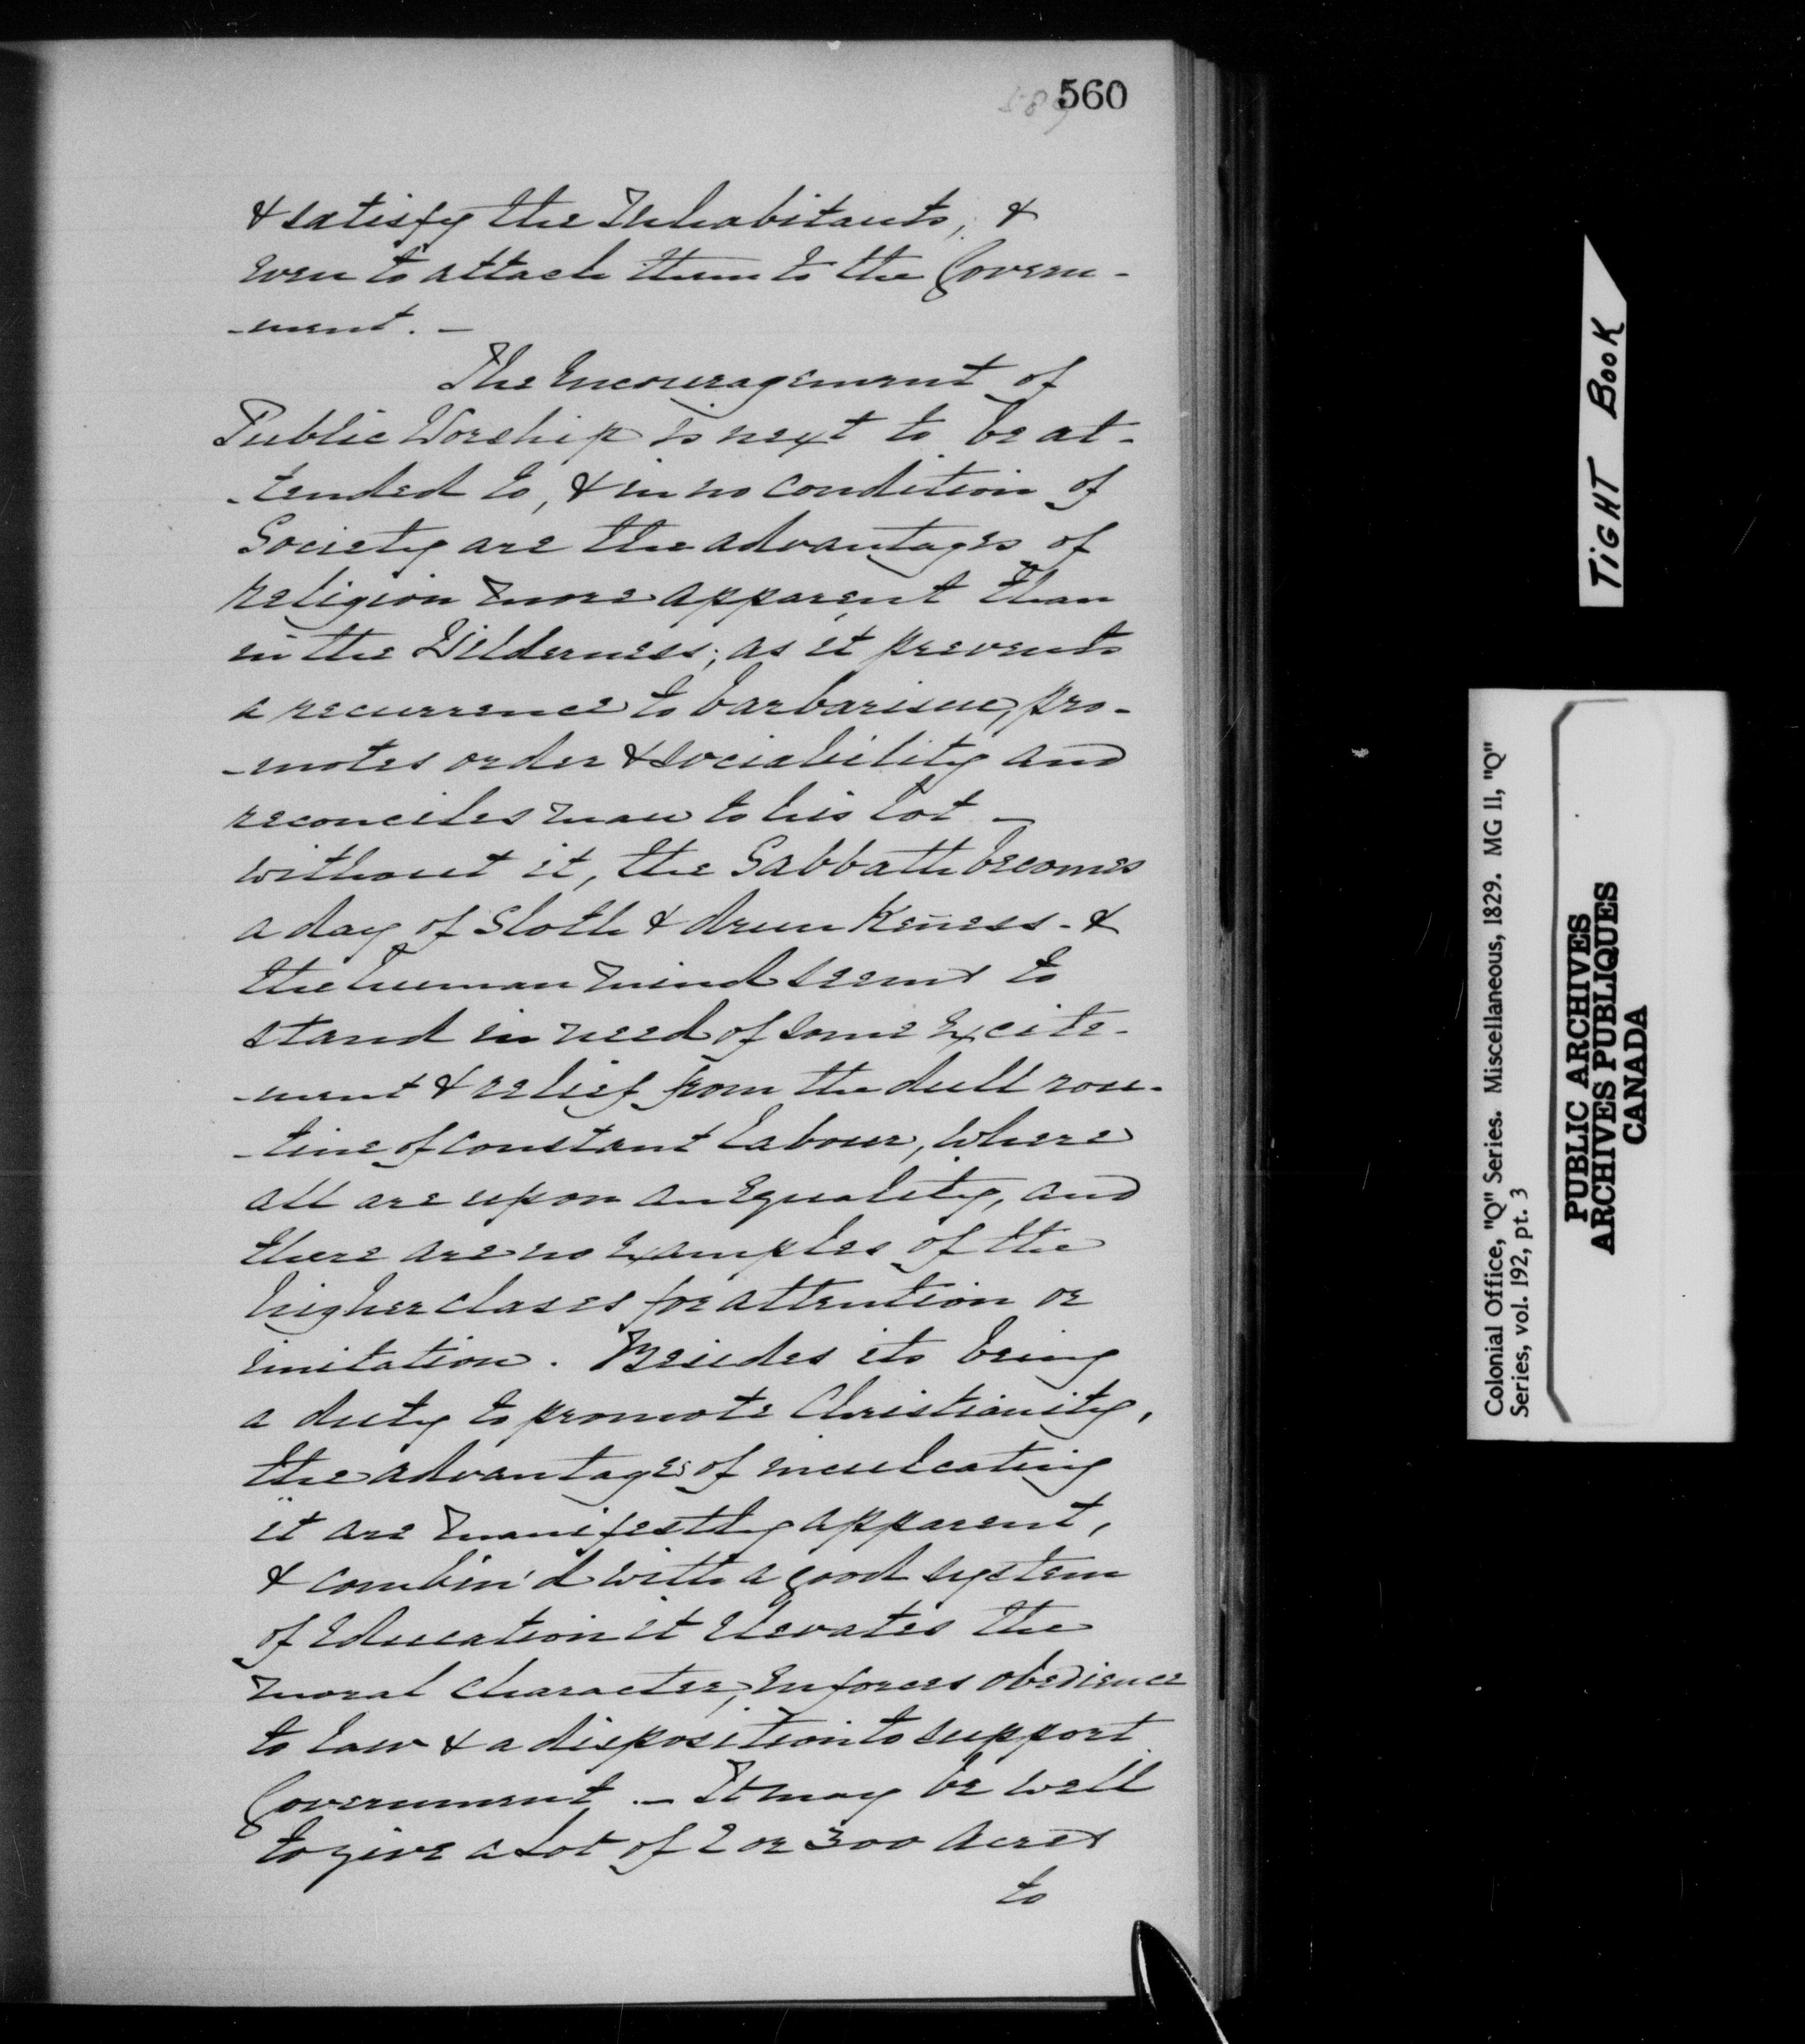 560
& satisfy the Inhabitants, &
even to attach them to the Govern-
-ment. —
The Encouragement of
Public Worship is next to be at-
-tended to, & in no condition of
Society are the advantages of
religion more apparent than
in the Wilderness; as it prevents
a recurrence to barbarism, pro-
-motes order & sociability and
reconciles man to his lot —
without it, the Sabbath becomes
a day of Sloth & drunkeñess - &
the human mind seems to
stand in need of some Excite-
-ment & relief from the dull rou-
-tine of constant labour, where
all are upon an Equality, and
there are no Examples of the
higher clases for attention or
imitation. Besides its being
a duty to promote Christianity,
the advantages of inculcating
it are manifestly apparent,
& combin'd with a good system
of Education it Elevates the
moral character, Enforces obedience
to law & a disposition to support
Government. — It may be well
to give a Lot of 2 or 300 Acres
to
TIGHT BOOK
Colonial Office, "Q" Series. Miscellaneous, 1829. MG 11, "Q"
Series, vol. 192, pt. 3
PUBLIC ARCHIVES
ARCHIVES PUBLIQUES
CANADA